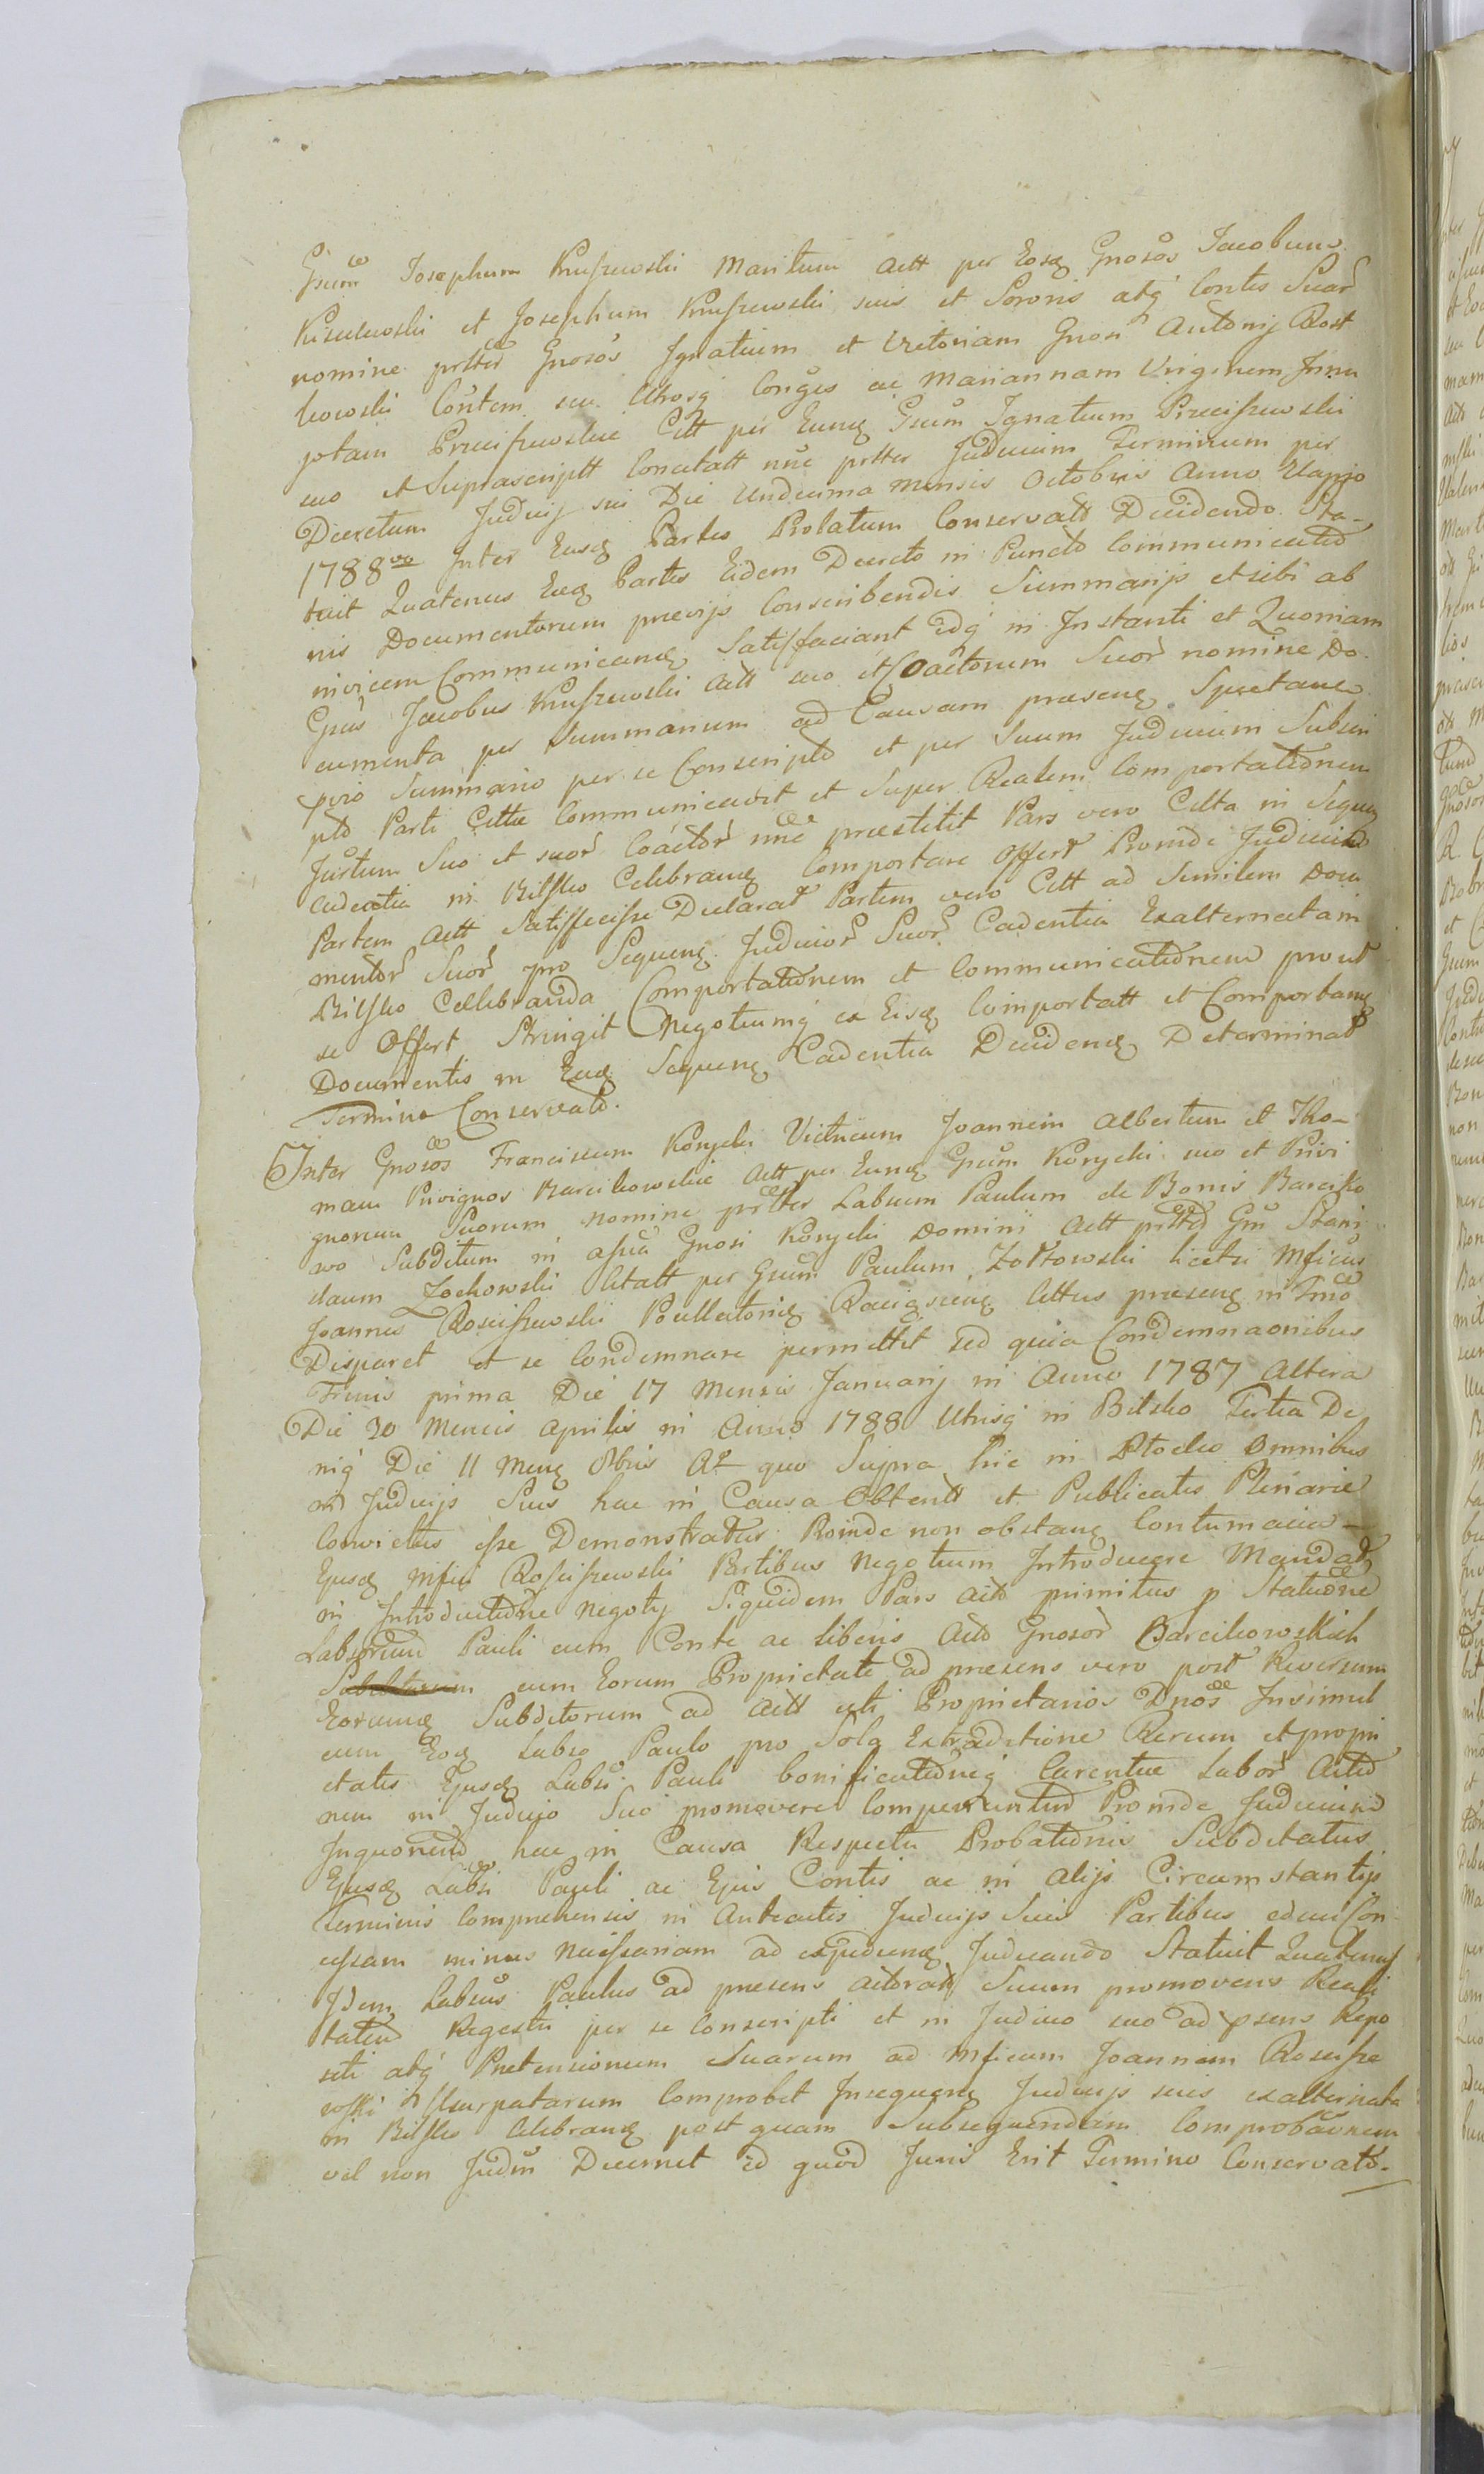 Gsum Josephum Kruszewski Maritum Actt per Eosq Gnosos Jacobum
Kisielewski et Josephum Kruszewski suis et Sororis atq Contis Suar
nomine prtter Gnosos Ignatium et Victoriam Gnosi Antonij Rost
kowski Contem seu Utrosq Conges ac Mariannam Virginem Innu
ptam Preciszewskie Citt per Eunq Gsum Ignatium Preciszewski
suo et Suprascriptt Concitatt nne prtter Judicium Terminum per
Decretum Judicij sui Die Undecima Mensis Octobris Anno Elapso
1788vo Inter Easq Partes Prolatum Conservatt Decidendo Sta-
tuit Quatenus Eaeq Partes Eidem Decreto in Puncto Communicatio
nis Documentorum praevijs Conscribendis Summarijs et sibi ab
invicem Communicanq Satisfaciant idq in Instanti et Quoniam
Gsus Jacobus Kruszewski Actt suo et Coactorum Suor nomine Do
cumenta per Summarium ad Causam praesenq Spectanq
pro Summario per se Conscripto et per Suum Judicium Subscri
pto Parti Cittae Communicavit et Super Realem Comportationem
Justum Suo et suor Coactor nne praestitit Pars vero Citta in Sequen
cadentia in Bilsko Celebranq Comportare Offert Proinde Judicium
Partem Actt Satisfecisse Declarat Partem vero Citt ad Similem Docu
mentor Suor pro Sequenq Judicior Suor Cadentia Exalternatam
Bilsko Cellebranda Comportationem et Communicationem prout
se Offert Stringit Negotiumq ex Eisq Comportatt et Comportanq
Documentis in Eaq Sequenq Cadentia Decidenq Determinat
Termino Conservato.
Inter Gnosos Franciscum Konycki Vitricum Joannem Albertum et Tho-
mam Privignos Barcikowskie Actt per Eunq Gsum Konycki suo et Privi
gnorum Suorum nomine prtter Labsum Paulum de Bonis Barciko
wo Subditum in assia Gnosi Konycki Domini Actt prtto Gm Stani
slaum Zochowski Citatt per Gsum Paulum Zoltowski licet Mficus
Joannes Rosciszewski Pocillatoriq Raciazenq Cittus praesenq in Tmo
Disparet et se Condemnare permittit sed quia Condemnaonibus
Trinis prima Die 17 Mensis Januarij in Anno 1787 Altera
Die 30 Mensis Aprilis in Anno 1788 Utrisq in Bilsko Tertia De
niq Die 11 Menq 8bris Ao quo Supra hic in Plocko Omnibus
in Judicijs Suis hac in Causa Obtentt et Publicatis Plenarie
Convictus esse Demonstratur Proinde non obstanq Contumacia -
Ejusq Mfici Rosciszewski Partibus Negotium Introducere Mandat
in Introductione Negotij Siquidem Pars Acto primitus p Statuone
Laboriosi Pauli cum Conte ac liberis Acto Gnosor Barcikowskich
cum Eorum Proprietate ad praesens vero post Reversum
Eorumq Subditorum ad Actt uti Proprietarios Dnos Insimul
cum Eoq Labso Paulo pro Sola Extraditione Rerum et propri
etatis Ejusq Labsi Pauli bonificationeq Carentiae Labor Actio
nem in Judicijo Suo promovere Comperiuntur Proinde Judicium
hac in Causa Respectu Probationis Subditatus
Ejusq Labsi Pauli ac Ejus Contis ac in Alijs Circumstantijs
Terminis Comprehensis in Anteactis Judicijs Suis Partibus
cessam minus necessariam ad expedienq Judicando Statuit Quatenus
Idem Labsus Paulus ad praesens Actorat Suum promovens Reali
tatem Regestri per se Conscripti et in Judicio suo ad psens Repo
siti atq Pretensionum Suarum ad Mficum Joannem Rosciszew
wski Usurpatarum Comprobet Insequenq Judicijs suis exalternata
in Bilsko Celebranq post quam Subsequendam Comprobaonem
vel non Judm Decernet id quod Juris Erit Termino Conservato.